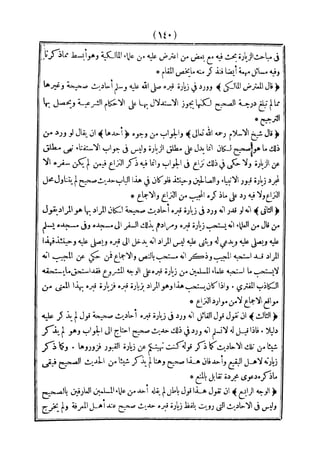 (١٤٠)
فى مباحث الزيارة بحث فيه مع بعض من اعترض عليه من علماء المالكية وهو أبسط مما ذكرناه
وفيه مسائل مهمة أيضا فنذكر منه ما يخص المقام *
* قال المعترض المالكى * وورد فى زيارة قبره صلى الله عليه وسلم أحاديث صحيحة وغيرها
مما لم تبلغ درجة الصحيح لكنها يجوز الاستدلال بها على الاحكام الشرعية ويحصل بها
الترجيح *
* قال شيخ الاسلام رحمه الله تعالى * والجواب من وجوه * أحدها * ان يقال لو ورد من
ذلك ما هو صحيح لكان انما يدل على مطلق الزيارة وليس فى جواب الاستفتاء نهى مطلق
عن الزيارة ولا حكى فى ذلك نزاع فى الجواب وانما فيه ذكر النزاع فيمن لم يكن سفره الا
لمجرد زيارة قبور الانبياء والصالحين وحينئذ فلو كان فى هذا الباب حديث صحيح لم يتناول محل
النزاع ولا فيه رد على ما ذكره المجيب من النزاع والاجماع *
* الثانى * انه لو قدر انه ورد فى زيارة قبره أحاديث صحيحة لكان المراد بها هو المراد بقول
من قال من العلماء انه يستحب زيارة قبره ومرادهم بذلك السفر الى مسجده وفى مسجده يسلم
عليه ويصلى عليه ويدعى له ويثنى عليه ليس المراد انه يدخل الى قبره ويصلى عليه وحينئذ فهذا
المراد قد استحبه المجيب وذكر انه مستحب بالنص والاجماع فمن حكى عن المجيب انه
لايستحب ما استحبه علماء المسلمين من زيارة قبره على الوجه المشروع فقد استحق ما يستحقه
الكاذب المفترى . واذا كان يستحب هذا وهو المراد بزيارة قبره فزيارة قبره بهذا المعنى من
مواقع الاجماع لا من موارد النزاع *
* الثالث * ان نقول قول القائل انه ورد فى زيارة قبره أحاديث صحيحة قول لم يذكر عليه
دليلا . فاذا قيل له لانسلم انه ورد فى ذلك حديث صحيح احتاج الى الجواب وهو لم يذكر
شيئا من تلك الاحاديث كما ذكر قوله كنت نهيتكم عن زيارة القبور فزوروها . وكما ذكر
زيارته لاهل البقيع وأحد فان هذا صحيح وهنا لم يذكر شيئا من الحديث الصحيح فبقى
ما ذكره دعوى مجردة تقابل بالمنع *
* الوجه الرابع * ان نقول هذا قول باطل لم يقله أحد من علماء المسلمين العارفين بالصحيح
وليس فى الاحاديث التى رويت بلفظ زيارة قبره حديث صحيح عند أهل المعرفة ولم يخرج